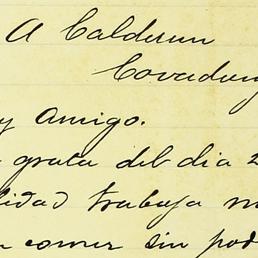 A Calderon
Covadong
y Amigo.
grata del dia 2
lidad trabaja m
n comer sin pod